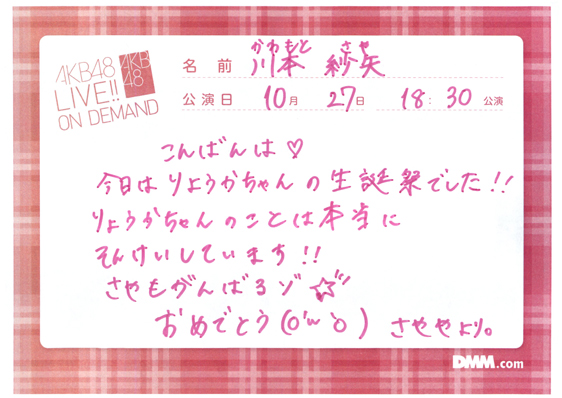 AKB48
LIVE!!
ON DEMAND
AKB
48
かわもと さや
名前 川本 紗矢
公演日 10月 27日 18:30 公演
こんばんは♡
今日はりょうかちゃんの生誕祭でした!!
りょうかちゃんのことは本当に
そんけいしています!!
さやもがんばるゾ☆
おめでとう(o'ω'o) さややより。
DMM.com